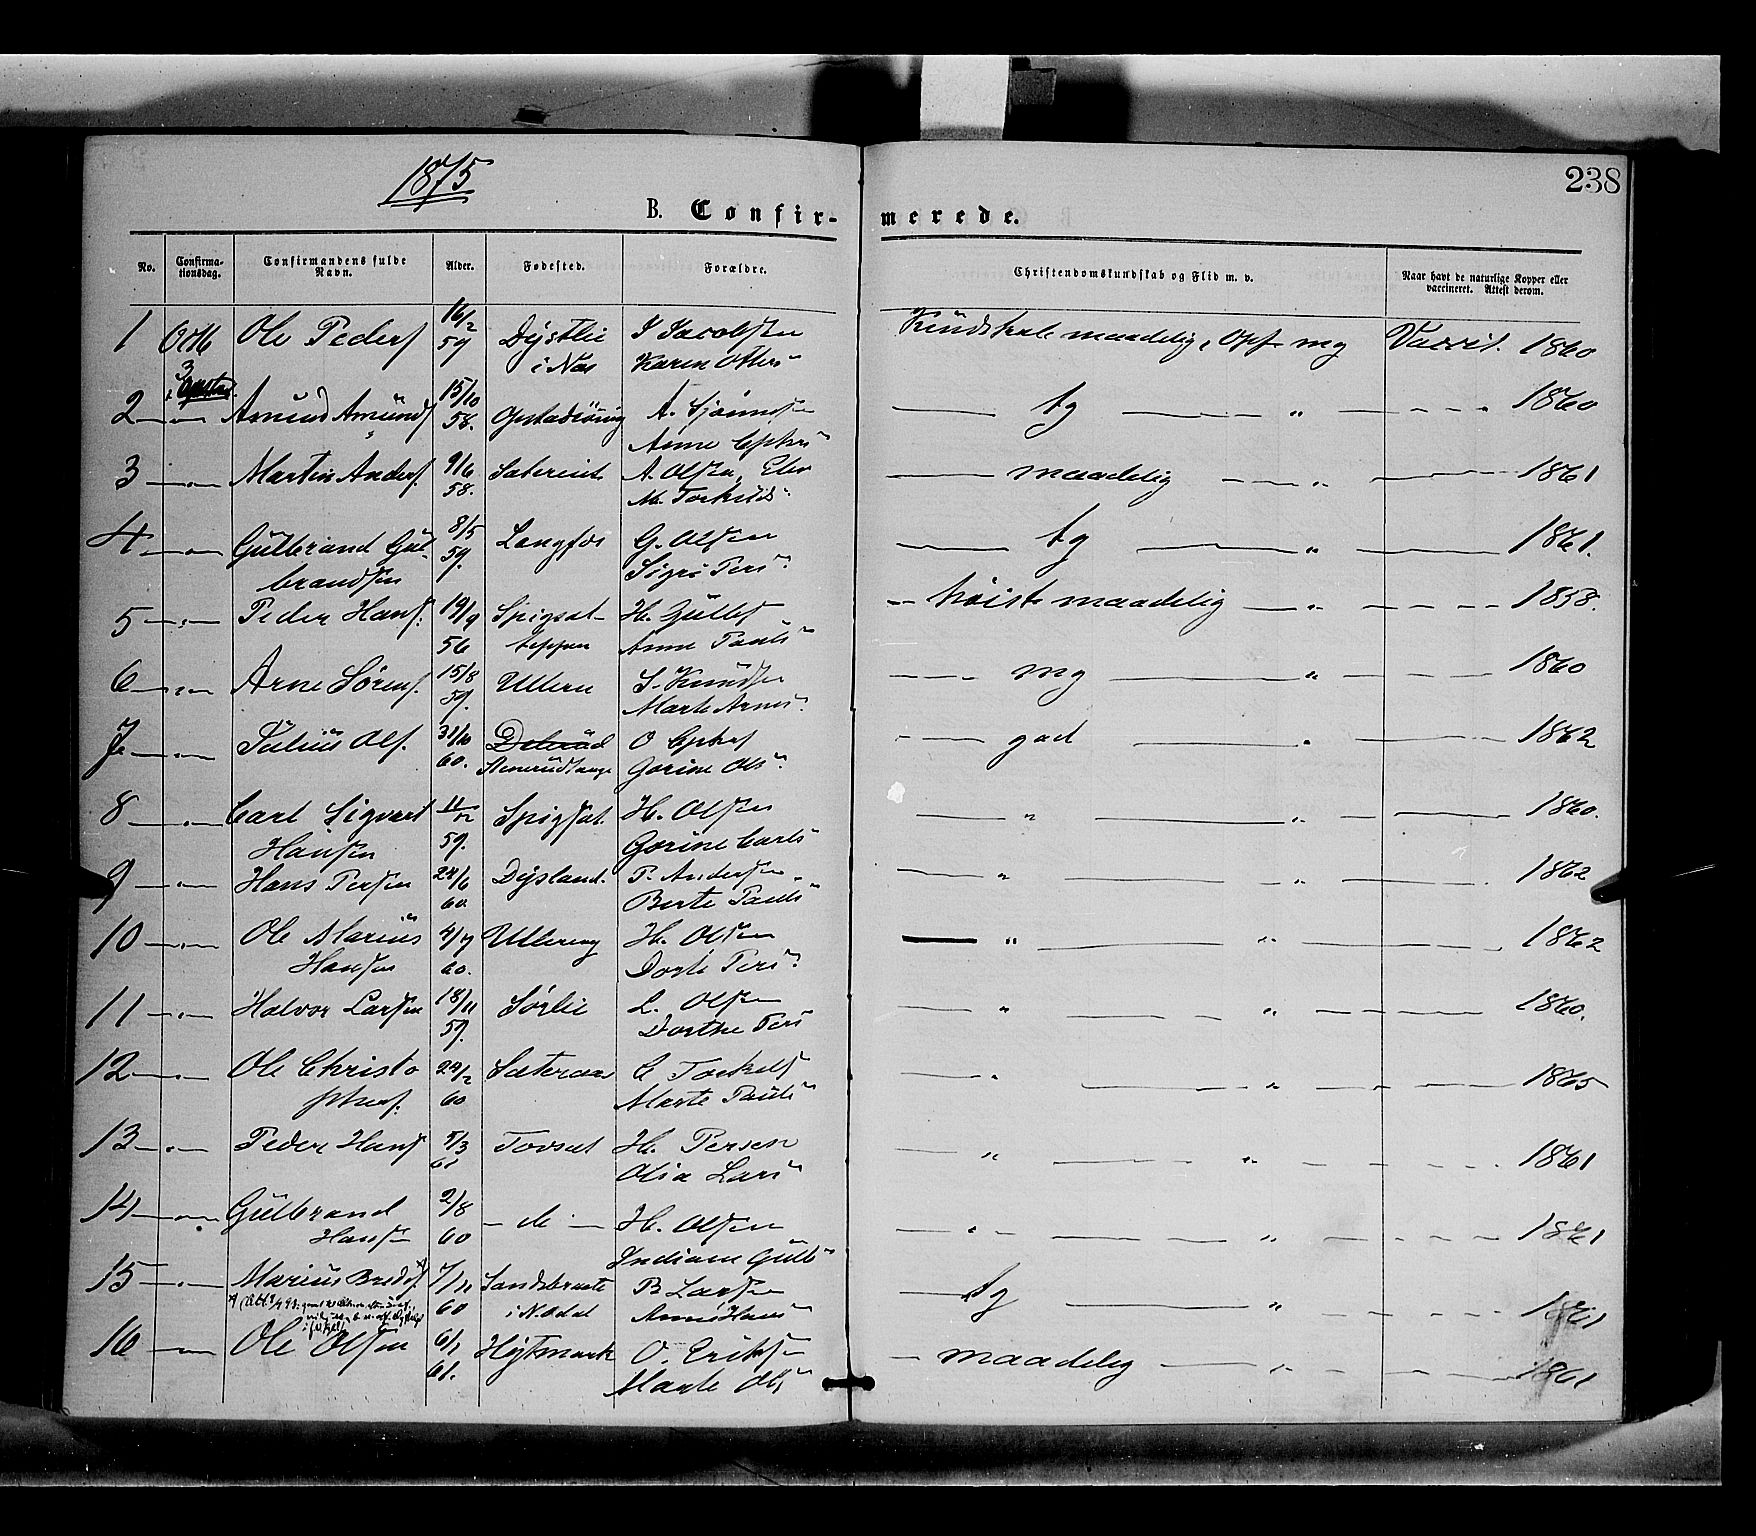 1875
238
B. Confir-merede.
No. Confirma-tionsdag. Confirmandens fulde Navn. Alder. Fødested. Forældre. Christendomskundskab og Flid m. v. Naar havt de naturlige Kopper eller vaccineret. Attest derom.
1 Octb 3 Ole Peders 16/2 59 Dystlie i Nas J Jacobsen Karen Kundskab maadelig, Opf mg 1860
2 Amund Amunds 15/10 58. A. Anne tg " 1860
3 Martin Anders. 9/6 58. A. Olsen, M. maadelig " 1861
4 Gulbrand Gul-
brandsen 8/5 59. Langfos G. Olsen Sigri Pers tg " 1861.
5 Peder Hans. 19/9 56 H. Gulb Anne Pauls høist maadelig " 1858.
6 Arne Sørens. 15/8 59. Ullern S. Knudsen Marte Arnes mg " 1860
7 Julius Ols. 31/10 60. O Gorine Ols god " 1862
8 Carl Sigvart
Hansen 11/12 59. Spigset. H. Olsen Gorine Carls " " 1860.
9 Hans Persen 24/6 60. Dysland. P. Andersen Berte Pauls " " 1862
10 Ole Marius
Hansen 4/7 60. Ullereng H. Olsen Dorte Pers " " 1862
11 Halvor Larsen 18/11 59. Sørlie L. Olsen Dorthe Pers " " 1860.
12 Ole Christo
phers. 24/2 60 C Torkels Marte Pauls " " 1865
13 Peder Hans 5/3 61 H. Persen Olia Lars " " 1861
14 Gulbrand
Hansen 2/8 60 - do - H. Olsen Indiane Gulb " " 1861
15 Marius 7/11 60 i N. Odal B Larsen Anne Hans tg " 1861
16 Ole Olsen 6/1 61. O. Eriksen Marte Ols maadelig " 1861